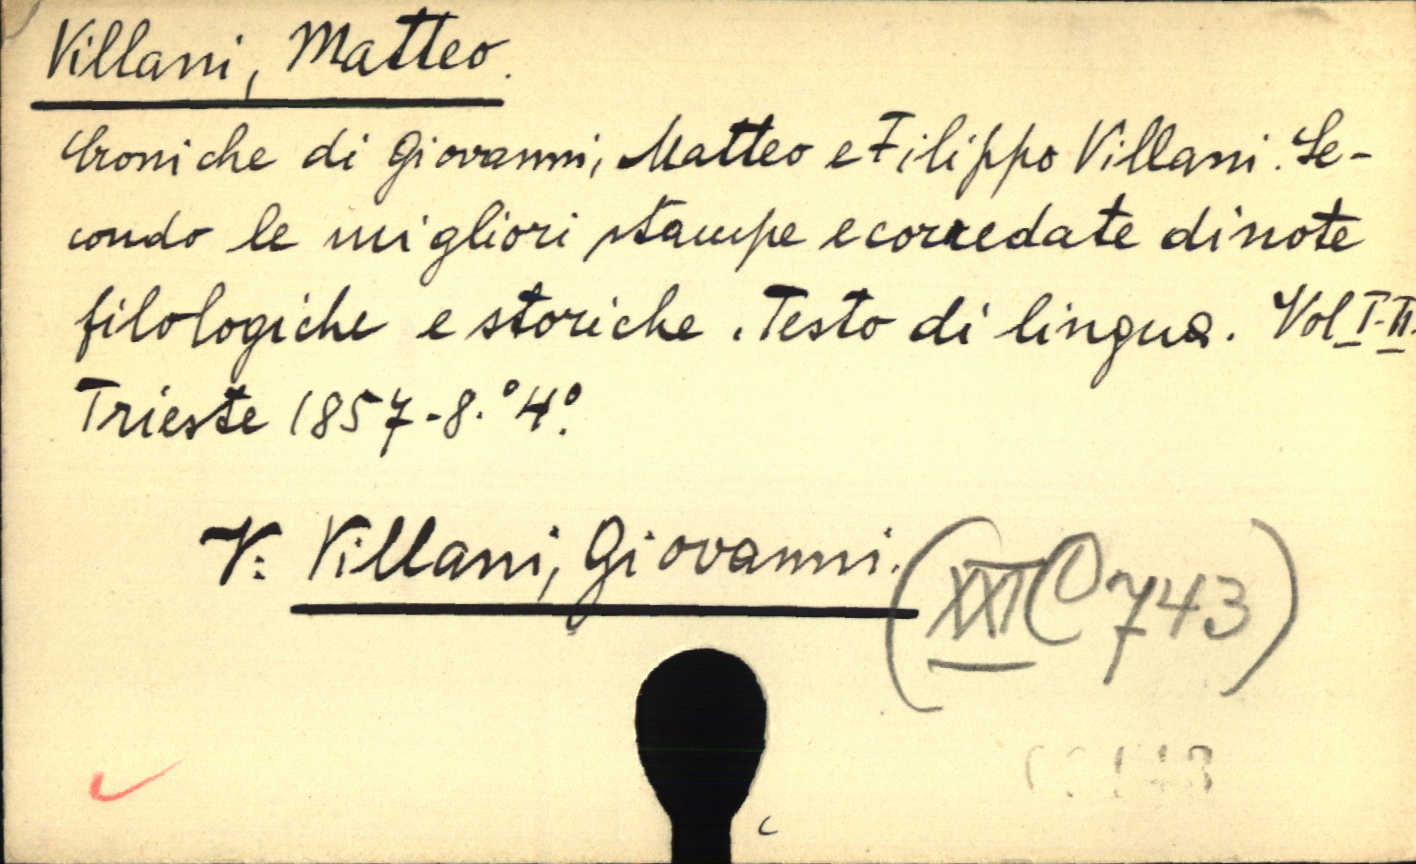 Villani, Matteo.
Croniche di Giovanni, Matteo e Filippo Villani. Se-
condo le migliori stampe e corredate di note
filologiche e storiche. Testo di lingua. Vol I-II.
Trieste 1857-8.° 4°.
V: Villani, Giovanni.
(XXI C 743)